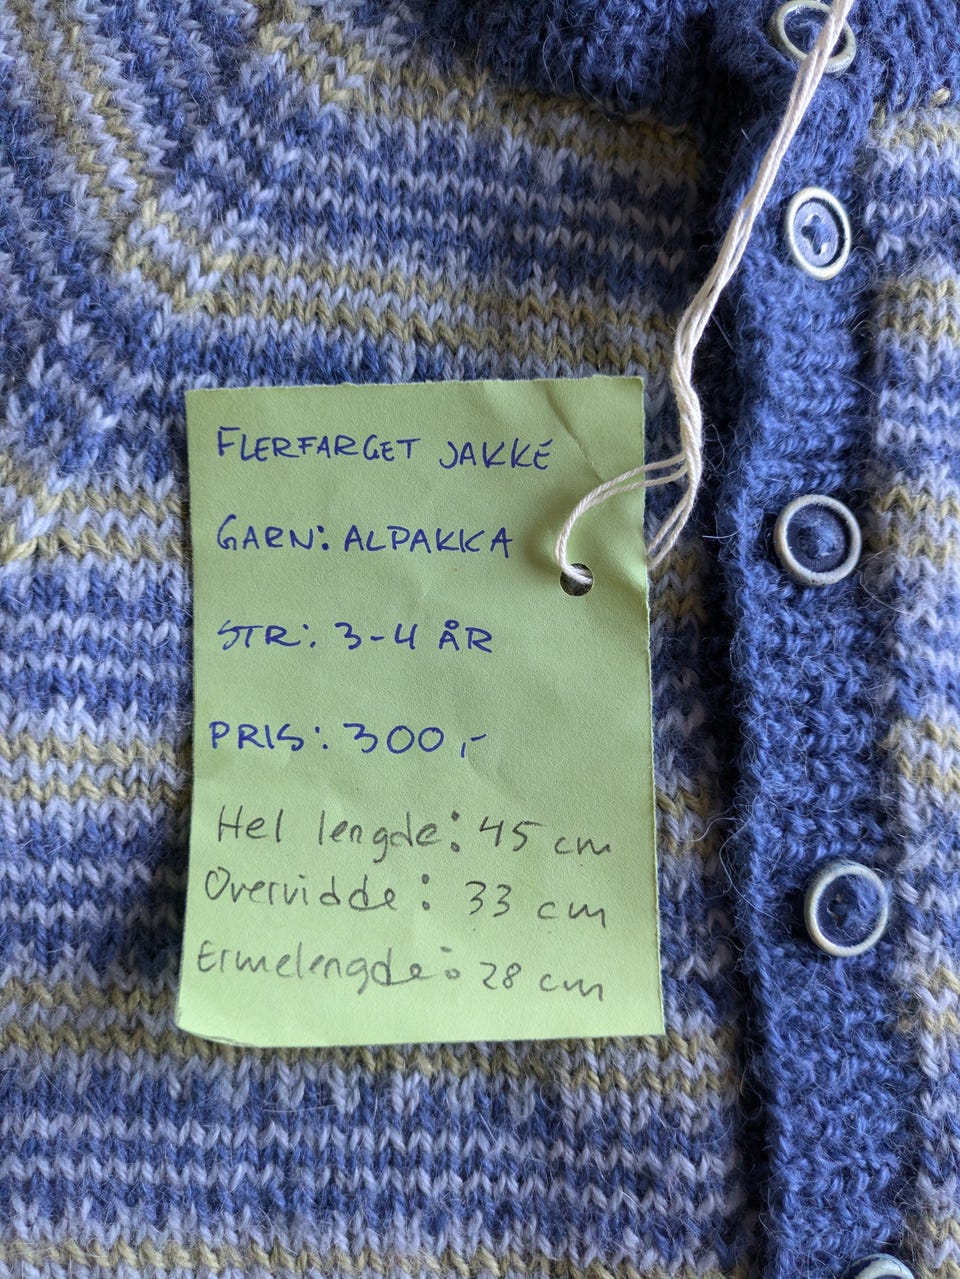 FLERFARGET JAKKE
GARN: ALPAKKA
STR: 3-4 ÅR
PRIS: 300,-
Hel lengde: 45 cm
Overvidde: 33 cm
Ermelengde: 28 cm